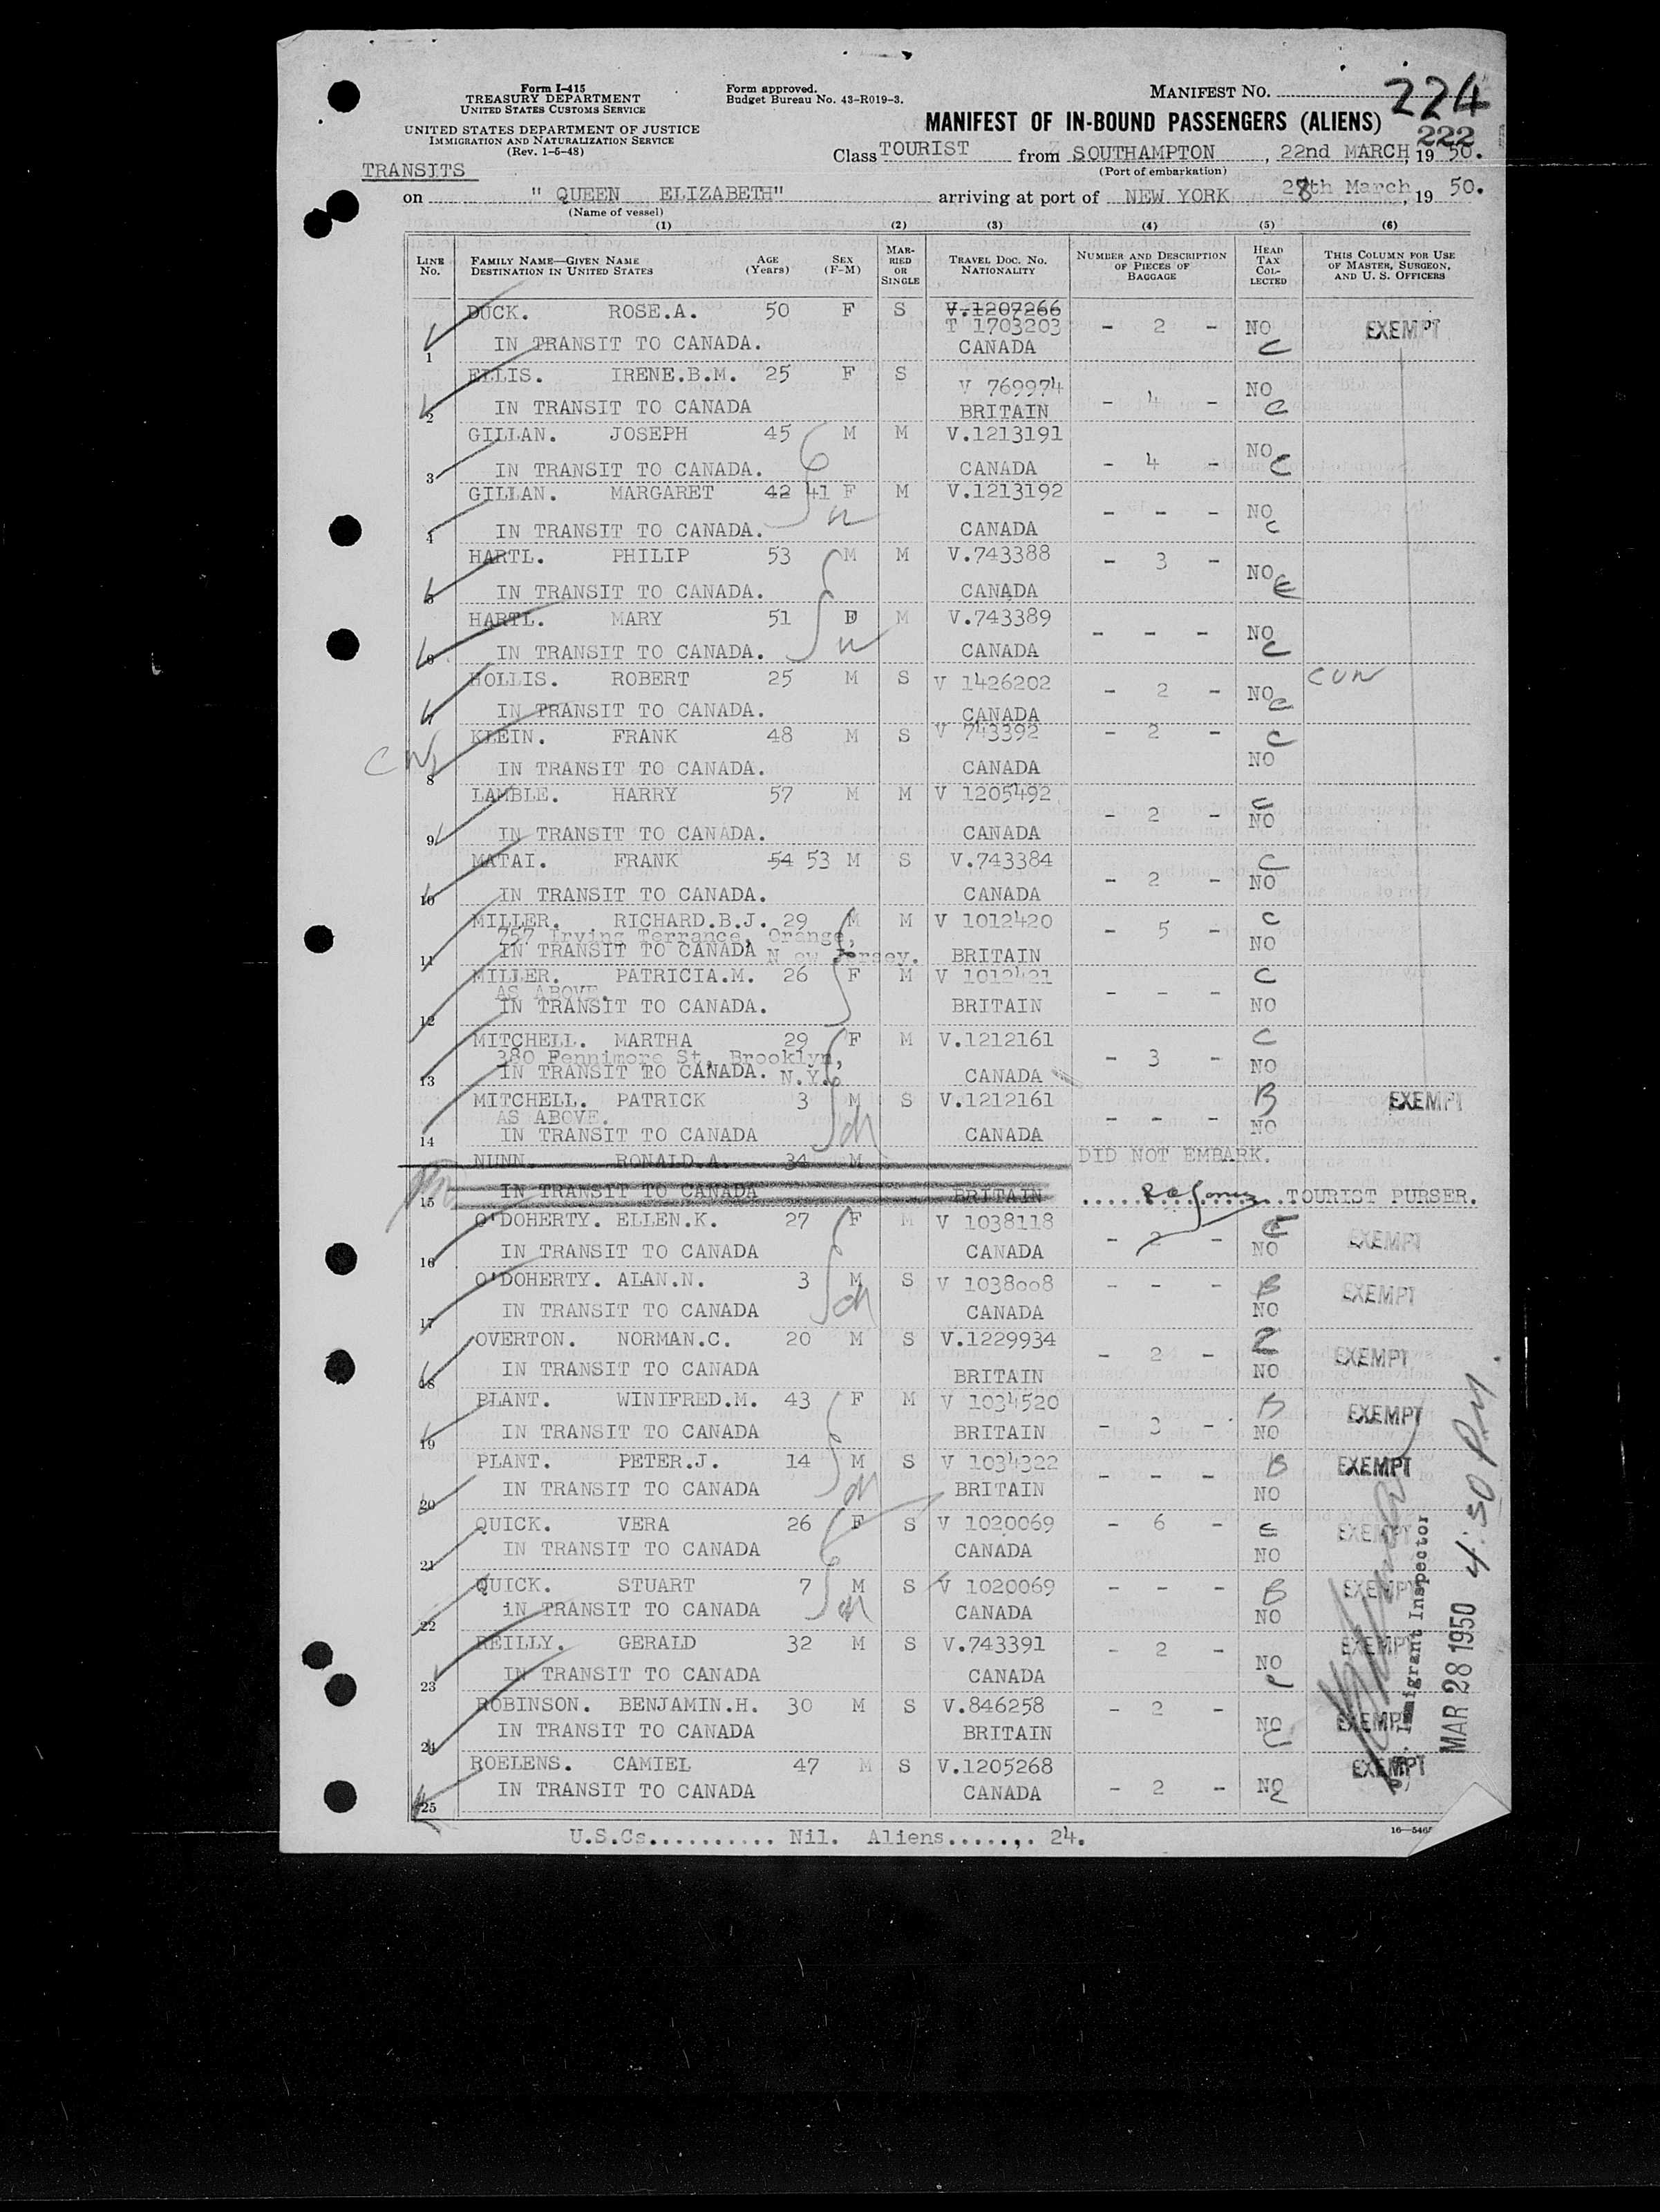 Form I-415
TREASURY DEPARTMENT
UNITED STATES CUSTOMS SERVICE
UNITED STATES DEPARTMENT OF JUSTICE
IMMIGRATION AND NATURALIZATION SERVICE
(Rev. 1-5-48)
Form approved.
Budget Bureau No. 43-R019-3.
MANIFEST NO. 224
222
MANIFEST OF IN-BOUND PASSENGERS (ALIENS)
Class TOURIST from SOUTHAMPTON, 22nd MARCH, 19 50.
(Port of embarkation)
TRANSITS
on "QUEEN ELIZABETH" arriving at port of NEW YORK 28th March, 19 50.
(Name of vessel)
(1) (2) (3) (4) (5) (6)
LINE No. FAMILY NAME—GIVEN NAME DESTINATION IN UNITED STATES AGE (Years) SEX (F-M) MARRIED OR SINGLE TRAVEL DOC. NO. NATIONALITY NUMBER AND DESCRIPTION OF PIECES OF BAGGAGE HEAD TAX COLLECTED THIS COLUMN FOR USE OF MASTER, SURGEON, AND U. S. OFFICERS
DUCK. ROSE.A. 50 F S V.1207266
T 1703203 - 2 - NO EXEMPT
1 IN TRANSIT TO CANADA. CANADA C
ELLIS. IRENE.B.M. 25 F S V 769974 - 4 - NO
2 IN TRANSIT TO CANADA BRITAIN C
GILLAN. JOSEPH 45 M M V.1213191
3 IN TRANSIT TO CANADA. CANADA - 4 - NO C
GILLAN. MARGARET 42 41 F M V.1213192
4 IN TRANSIT TO CANADA. CANADA - - - NO C
HARTL. PHILIP 53 M M V.743388 - 3 -
5 IN TRANSIT TO CANADA. CANADA NO C
HARTL. MARY 51 F M V.743389
6 IN TRANSIT TO CANADA. CANADA - - - NO C
HOLLIS. ROBERT 25 M S V 1426202 - 2 - NO C
7 IN TRANSIT TO CANADA. CANADA
KLEIN. FRANK 48 M S V 743392 - 2 - C
8 IN TRANSIT TO CANADA. CANADA NO
LAMBLE. HARRY 57 M M V 1205492 C
9 IN TRANSIT TO CANADA. CANADA - 2 - NO
MATAI. FRANK 54 53 M S V.743384 C
10 IN TRANSIT TO CANADA. CANADA - 2 - NO
MILLER. RICHARD.B.J. 29 M M V 1012420 C
757 Irving Terrance, Orange, - 5 -
11 IN TRANSIT TO CANADA N ew Jersey. BRITAIN NO
MILLER. PATRICIA.M. 26 F M V 1012421 C
AS ABOVE.
12 IN TRANSIT TO CANADA. BRITAIN - - - NO
MITCHELL. MARTHA 29 F M V.1212161 C
380 Fennimore St, Brooklyn,
13 IN TRANSIT TO CANADA. N.Y. CANADA - 3 - NO
MITCHELL. PATRICK 3 M S V.1212161 B EXEMPT
AS ABOVE.
14 IN TRANSIT TO CANADA CANADA - - - NO
NUNN. RONALD.A. 34 M DID NOT EMBARK.
15 IN TRANSIT TO CANADA BRITAIN TOURIST PURSER.
O'DOHERTY. ELLEN.K. 27 F M V 1038118 C
16 IN TRANSIT TO CANADA CANADA - 2 - NO EXEMPT
O'DOHERTY. ALAN.N. 3 M S V 1038008 - - - B EXEMPT
17 IN TRANSIT TO CANADA CANADA NO
OVERTON. NORMAN.C. 20 M S V.1229934
18 IN TRANSIT TO CANADA BRITAIN - 2 - NO EXEMPT
PLANT. WINIFRED.M. 43 F M V 1034520 B EXEMPT
19 IN TRANSIT TO CANADA BRITAIN - 3 - NO
PLANT. PETER.J. 14 M S V 1034322 - - - B EXEMPT
20 IN TRANSIT TO CANADA BRITAIN NO
QUICK. VERA 26 F S V 1020069 - 6 - C EXEMPT
21 IN TRANSIT TO CANADA CANADA NO
QUICK. STUART 7 M S V 1020069 - - - B EXEMPT
22 iN TRANSIT TO CANADA CANADA NO
REILLY. GERALD 32 M S V.743391 - 2 - EXEMPT
23 IN TRANSIT TO CANADA CANADA NO C
ROBINSON. BENJAMIN.H. 30 M S V.846258 - 2 - EXEMPT
24 IN TRANSIT TO CANADA BRITAIN NO C
ROELENS. CAMIEL 47 M S V.1205268 EXEMPT
25 IN TRANSIT TO CANADA CANADA - 2 - NO C
Immigrant Inspector
MAR 28 1950 4:30 PM.
U.S.Cs.......... Nil. Aliens....... 24.